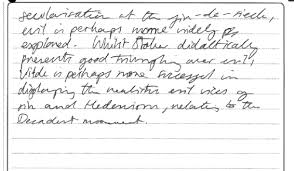 secularisation at the fin-de-siècle,
evil is perhaps more widely
explored. Whilst Stoker didactically
presents good triumphing over evil,
Wilde is perhaps more successful in
displaying the realistic evil vices of
sin and Hedonism, relating to the
Decadent movement.